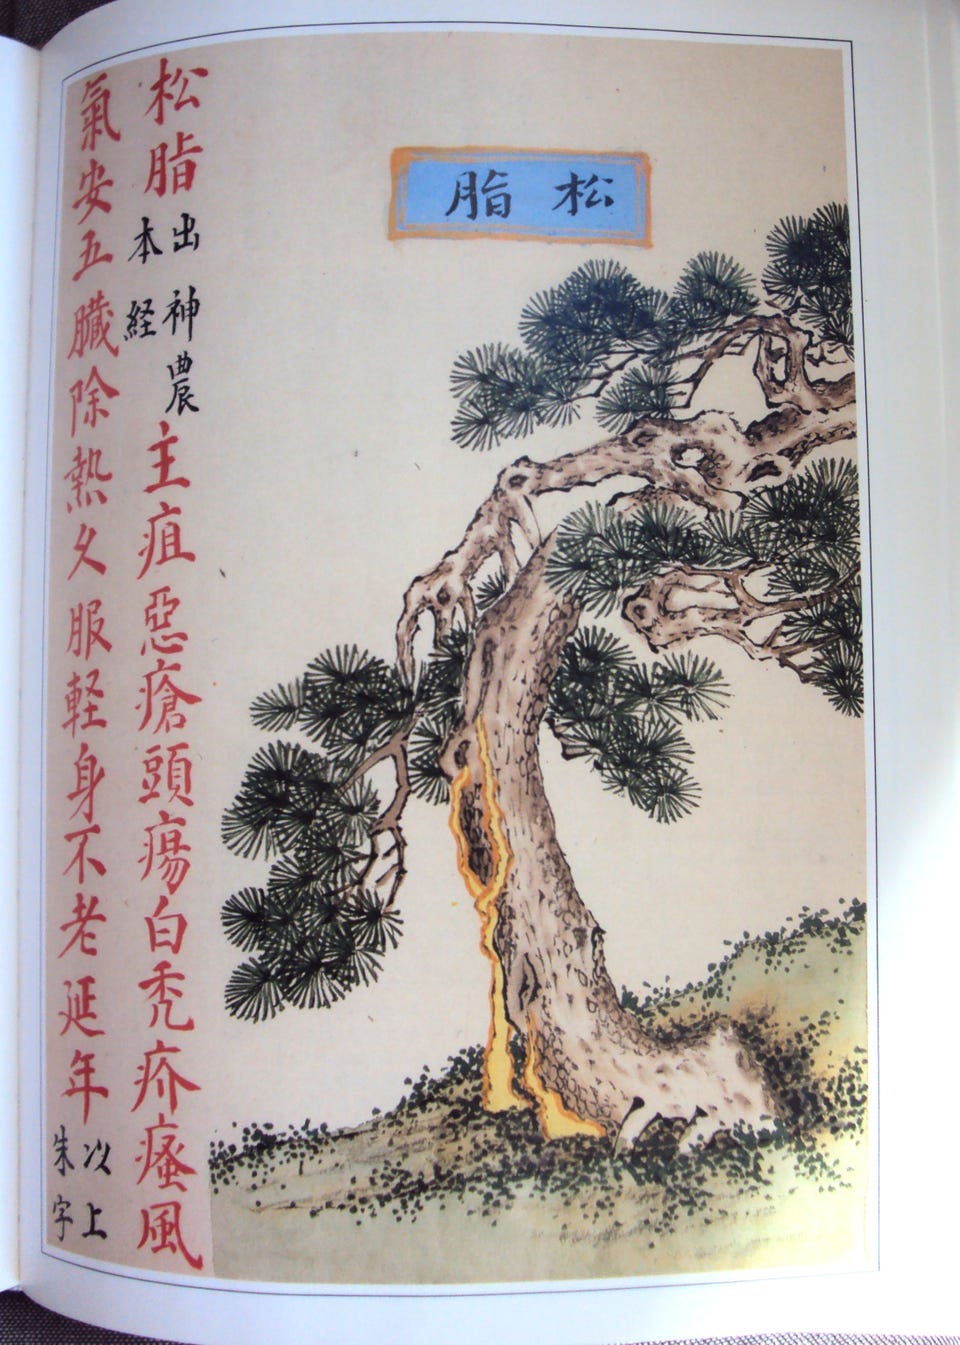 松脂
松脂出神農本経主疽惡瘡頭瘍白禿疥瘙風
氣安五臓除熱久服軽身不老延年以上朱字